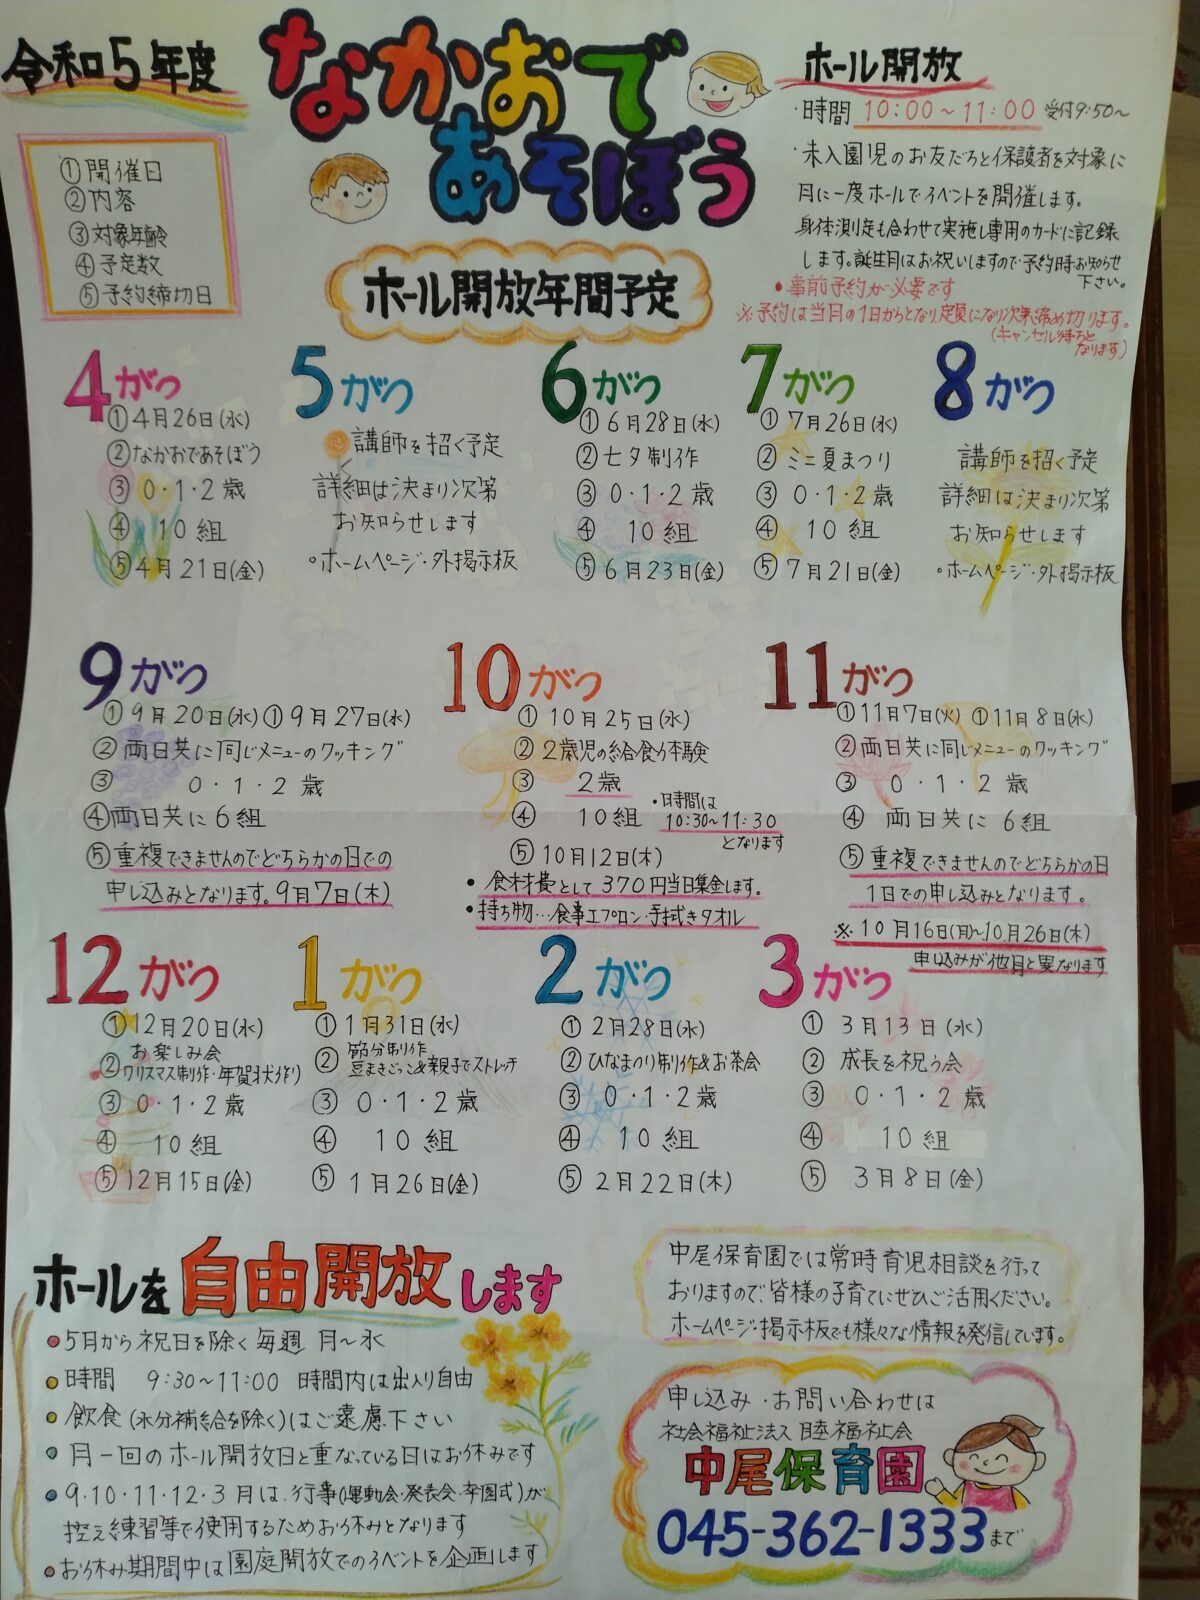 令和5年度
なかおで
あそぼう
①開催日
②内容
③対象年齢
④予定数
⑤予約締切日
ホール開放年間予定
ホール開放
・時間 10:00～11:00 受付9:50～
・未入園児のお友だちと保護者を対象に
月に一度ホールでイベントを開催します。
身体測定も合わせて実施し専用のカードに記録
します。誕生月はお祝いしますので予約時お知らせ
下さい。
●事前予約が必要です
※予約は当月の1日からとなり定員になり次第締め切ります。
(キャンセル待ちと
なります)
4がつ
①4月26日(水)
②なかおであそぼう
③0・1・2歳
④10組
⑤4月21日(金)
5がつ
講師を招く予定
詳細は決まり次第
お知らせします
・ホームページ・外掲示板
6がつ
①6月28日(水)
②七夕制作
③0・1・2歳
④10組
⑤6月23日(金)
7がつ
①7月26日(水)
②ミニ夏まつり
③0・1・2歳
④10組
⑤7月21日(金)
8がつ
講師を招く予定
詳細は決まり次第
お知らせします
・ホームページ・外掲示板
9がつ
①9月20日(水)①9月27日(水)
②両日共に同じメニューのクッキング
③0・1・2歳
④両日共に6組
⑤重複できませんのでどちらかの日での
申し込みとなります。9月7日(木)
10がつ
①10月25日(水)
②2歳児の給食力本験
③2歳
④10組
・日時間は
10:30～11:30
となります
⑤10月12日(木)
・食材費として370円当日集金します。
・持ち物…食事エプロン・手拭きタオル
11がつ
①11月7日(火)①11月8日(水)
②両日共に同じメニューのクッキング
③0・1・2歳
④両日共に6組
⑤重複できませんのでどちらかの日
1日での申し込みとなります。
※10月16日(月)～10月26日(木)
申し込みが他月と異なります
12がつ
①12月20日(水)
お楽しみ会
②クリスマス制作・年賀状作り
③0・1・2歳
④10組
⑤12月15日(金)
1がつ
①1月31日(水)
節分制作
②豆まきごっこ&親子でストレッチ
③0・1・2歳
④10組
⑤1月26日(金)
2がつ
①2月28日(水)
②ひなまつり制作&お茶会
③0・1・2歳
④10組
⑤2月22日(木)
3がつ
①3月13日(水)
②成長を祝う会
③0・1・2歳
④10組
⑤3月8日(金)
ホールを自由開放します
●5月から祝日を除く毎週 月～水
●時間 9:30～11:00 時間内は出入り自由
●飲食(水分補給を除く)はご遠慮下さい
●月一回のホール開放日と重なっている日はお休みです
●9・10・11・12・3月は、行事(運動会・発表会・卒園式)が
控え練習等で使用するためお休みとなります
●お休み期間中は園庭開放でのイベントを企画します
中尾保育園では常時育児相談を行って
おりますので、皆様の子育てにぜひご活用ください。
ホームページ・掲示板でも様々な情報を発信しています。
申し込み・お問い合わせは
社会福祉法人 睦福祉会
中尾保育園
045-362-1333まで